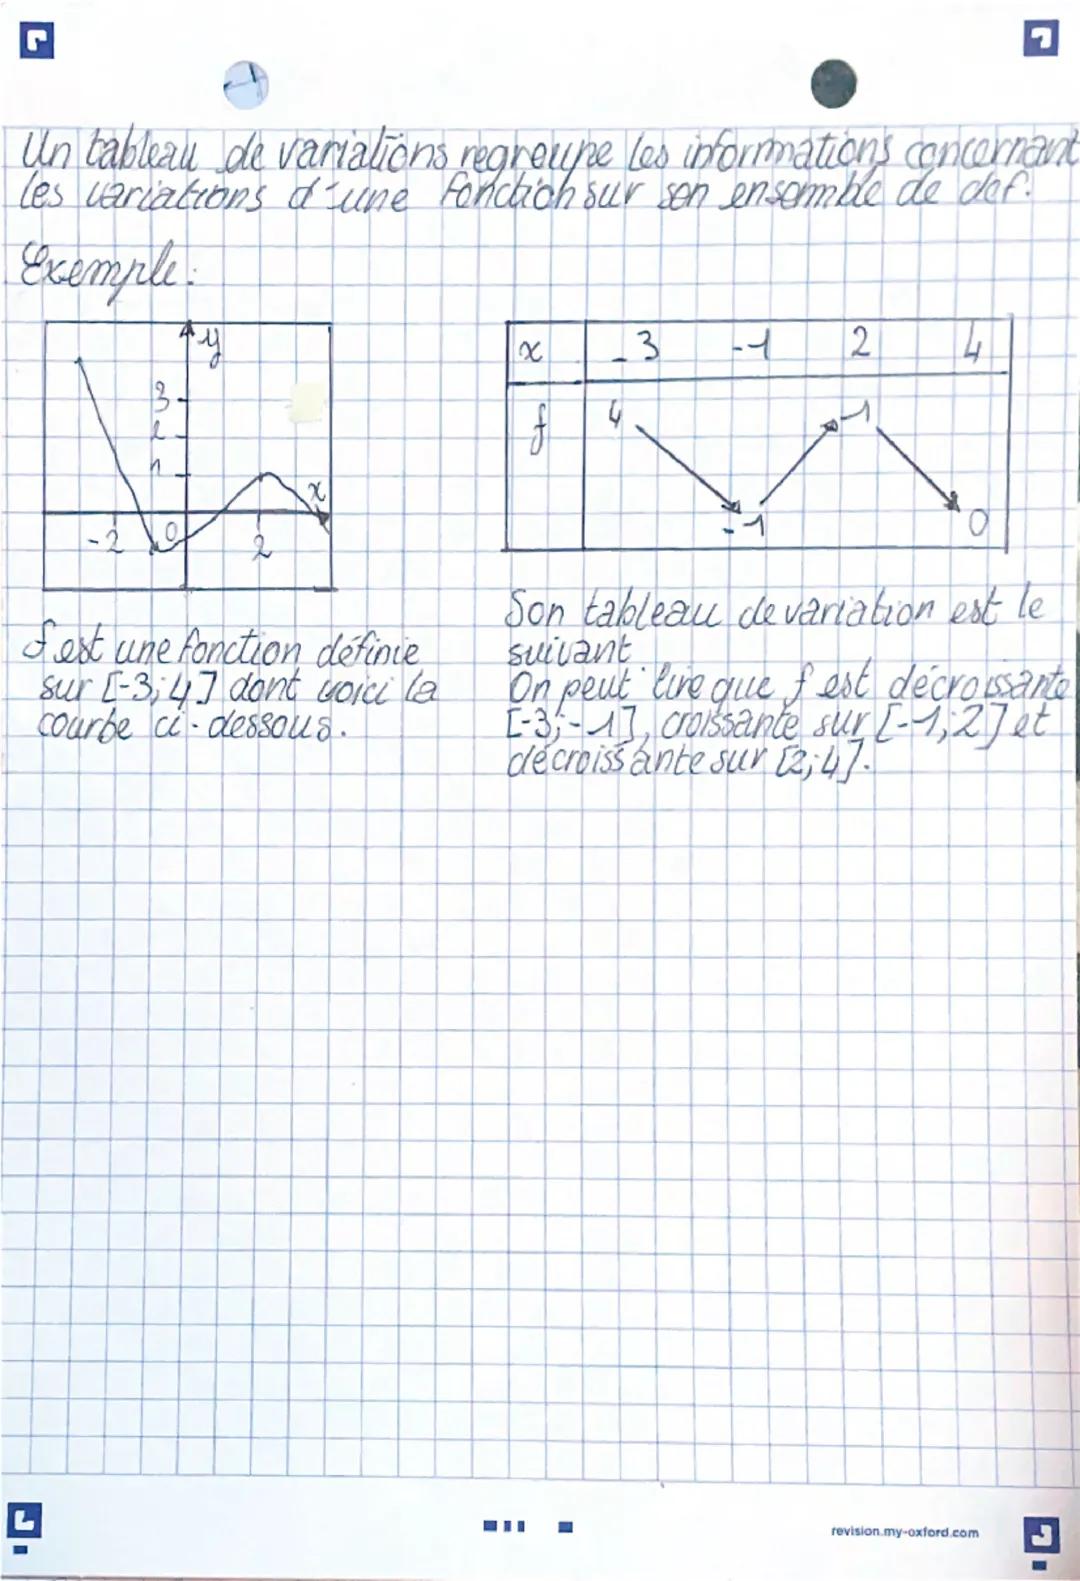 Un tableau de variations regroupe les informations concernant
les variations d'une fonction sur son ensemble de def.
Exemple:
y
3
2
1
x
-2
0
2
x -3 -1 2 4
f 4 -1 -1 0
f est une fonction définie
sur [-3;4] dont voici la
courbe ci-dessous.
Son tableau de variation est le
suivant
On peut lire que f est décroissante
[-3;-1], croissante sur [-1;2] et
décroissante sur [2;4].
revision.my-oxford.com